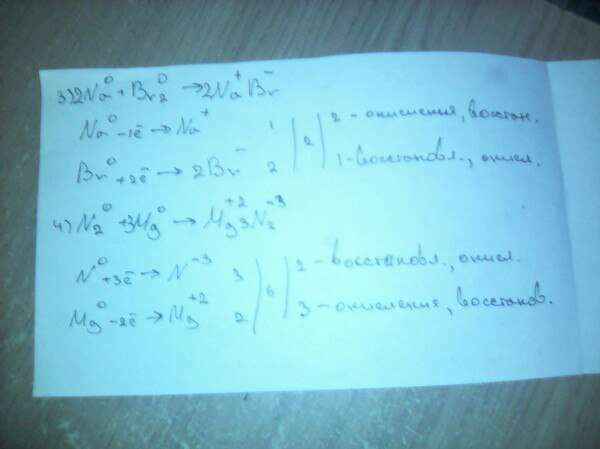 3) 2Na⁰ + Br₂⁰ → 2Na⁺Br⁻
Na⁰ -1ē → Na⁺ 1 | 2 | 2 - окисления, восстан.
Br⁰ +2ē → 2Br⁻ 2 | 1 - восстановл., окисл.
4) N₂⁰ + 3Mg⁰ → Mg⁺²₃N₂⁻³
N⁰ +3ē → N⁻³ 3 | 6 | 2 - восстановл., окисл.
Mg⁰ -2ē → Mg⁺² 2 | 3 - окисления, восстанов.